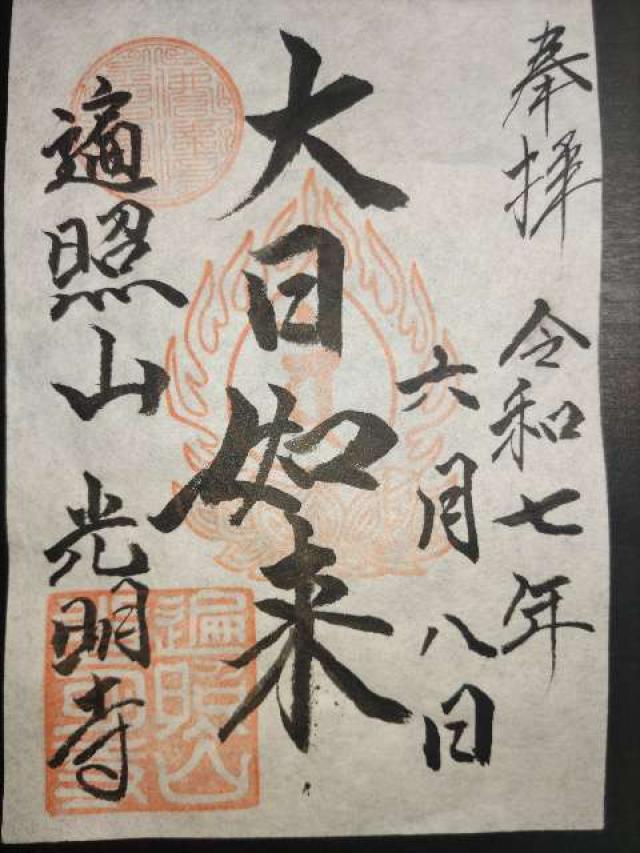 奉拝
令和七年
六月八日
大日如来
遍照山 光明寺